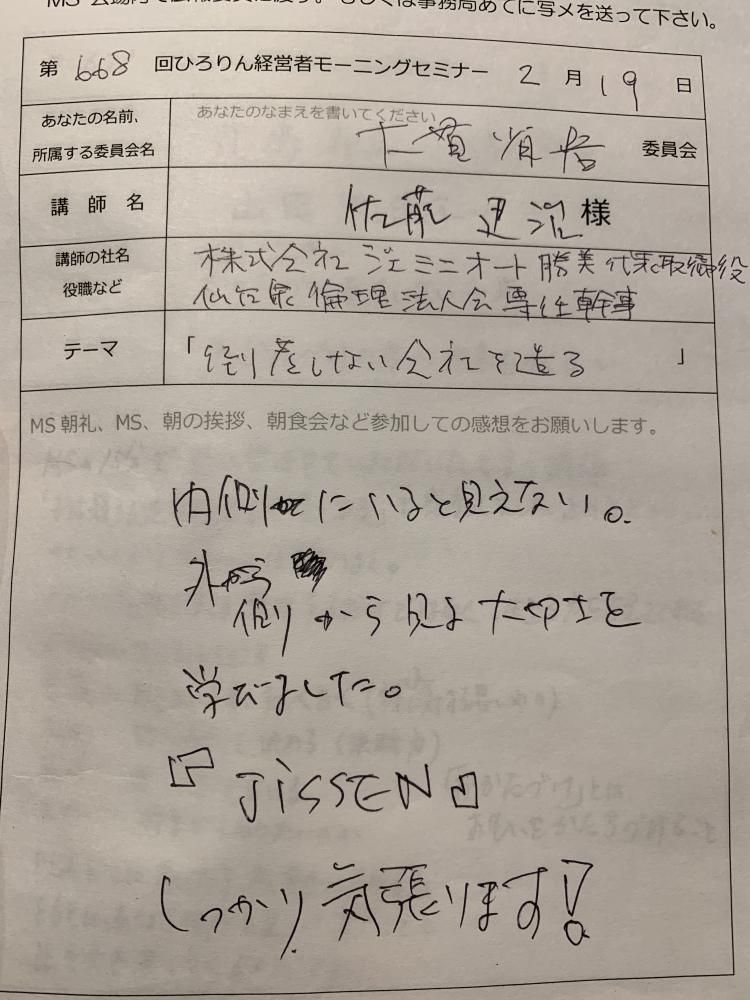 MS 会場内で広報委員に渡す。もしくは事務局あてに写メを送って下さい。
第 668 回ひろりん経営者モーニングセミナー 2 月 19 日
あなたの名前、
所属する委員会名
あなたのなまえを書いてください
委員会
講師名
佐藤 様
講師の社名
役職など
株式会社ジェミニオート勝美代表取締役
倫理法人会専任幹事
テーマ
「倒産しない会社を造る」
MS 朝礼、MS、朝の挨拶、朝食会など参加しての感想をお願いします。
内側にいると見えない。
外
側から見る大切さを
学びました。
『JiSSEN』
しっかり気張ります!